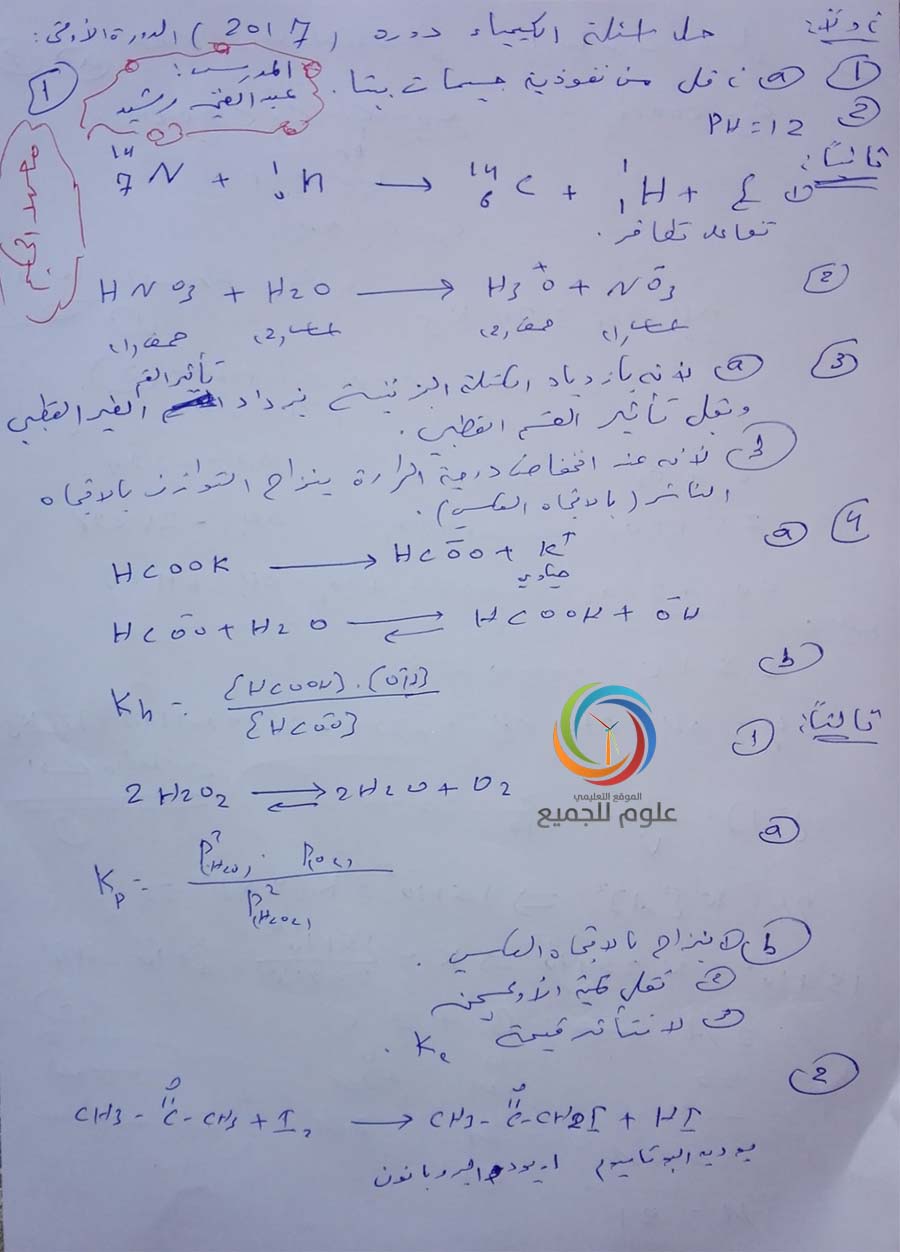 أولاً: حل اسئلة الكيمياء دورة (2017) الدورة الأولى:
المدرس:
عبد الغني رشيد
1
① ⓐ أقل من نفوذية جسيمات بيتا.
② PH = 12
ثانياً:
① ¹⁴₇N + ¹₀n → ¹⁴₆C + ¹₁H + E
تفاعل تطافر.
② HNO3 + H2O → H3O⁺ + NO3⁻
حمض(1) أساس(2) حمض(2) أساس(1)
③ ⓐ لأنه بازدياد الكتلة الجزيئية يزداد تأثير القسم الغير القطبي
ويقل تأثير القسم القطبي.
ⓑ لأنه عند انخفاض درجة الحرارة ينزاح التوازن بالاتجاه
الناشر (بالاتجاه العكسي).
④ ⓐ HCOOK → HCOO⁻ + K⁺
حيادي
HCOO⁻ + H2O ⇌ HCOOH + OH⁻
ⓑ Kh = [HCOOH].[OH⁻] / [HCOO⁻]
ثالثاً:
① 2H2O2 ⇌ 2H2O + O2
ⓐ Kp = P²(H2O) . P(O2) / P²(H2O2)
ⓑ ① ينزاح بالاتجاه العكسي.
② تقل كمية الأوكسجين
③ لا تتأثر قيمة Kc.
② CH3-C(=O)-CH3 + I2 → CH3-C(=O)-CH2I + HI
الموقع التعليمي
علوم للجميع